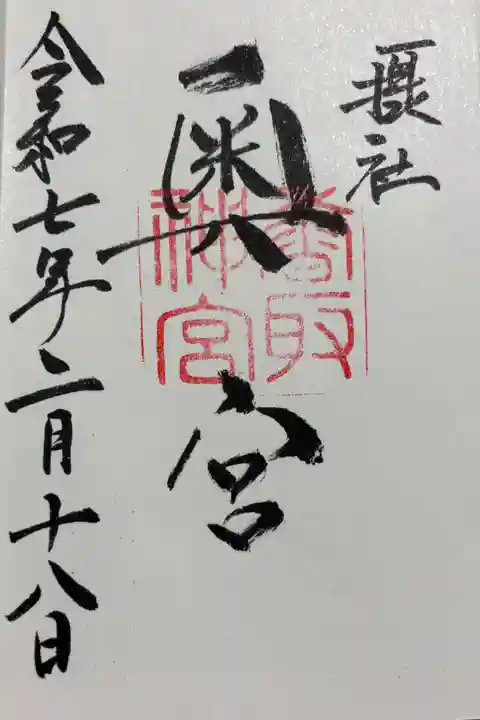 摂社
奥宮
香取
神宮
令和七年二月十八日